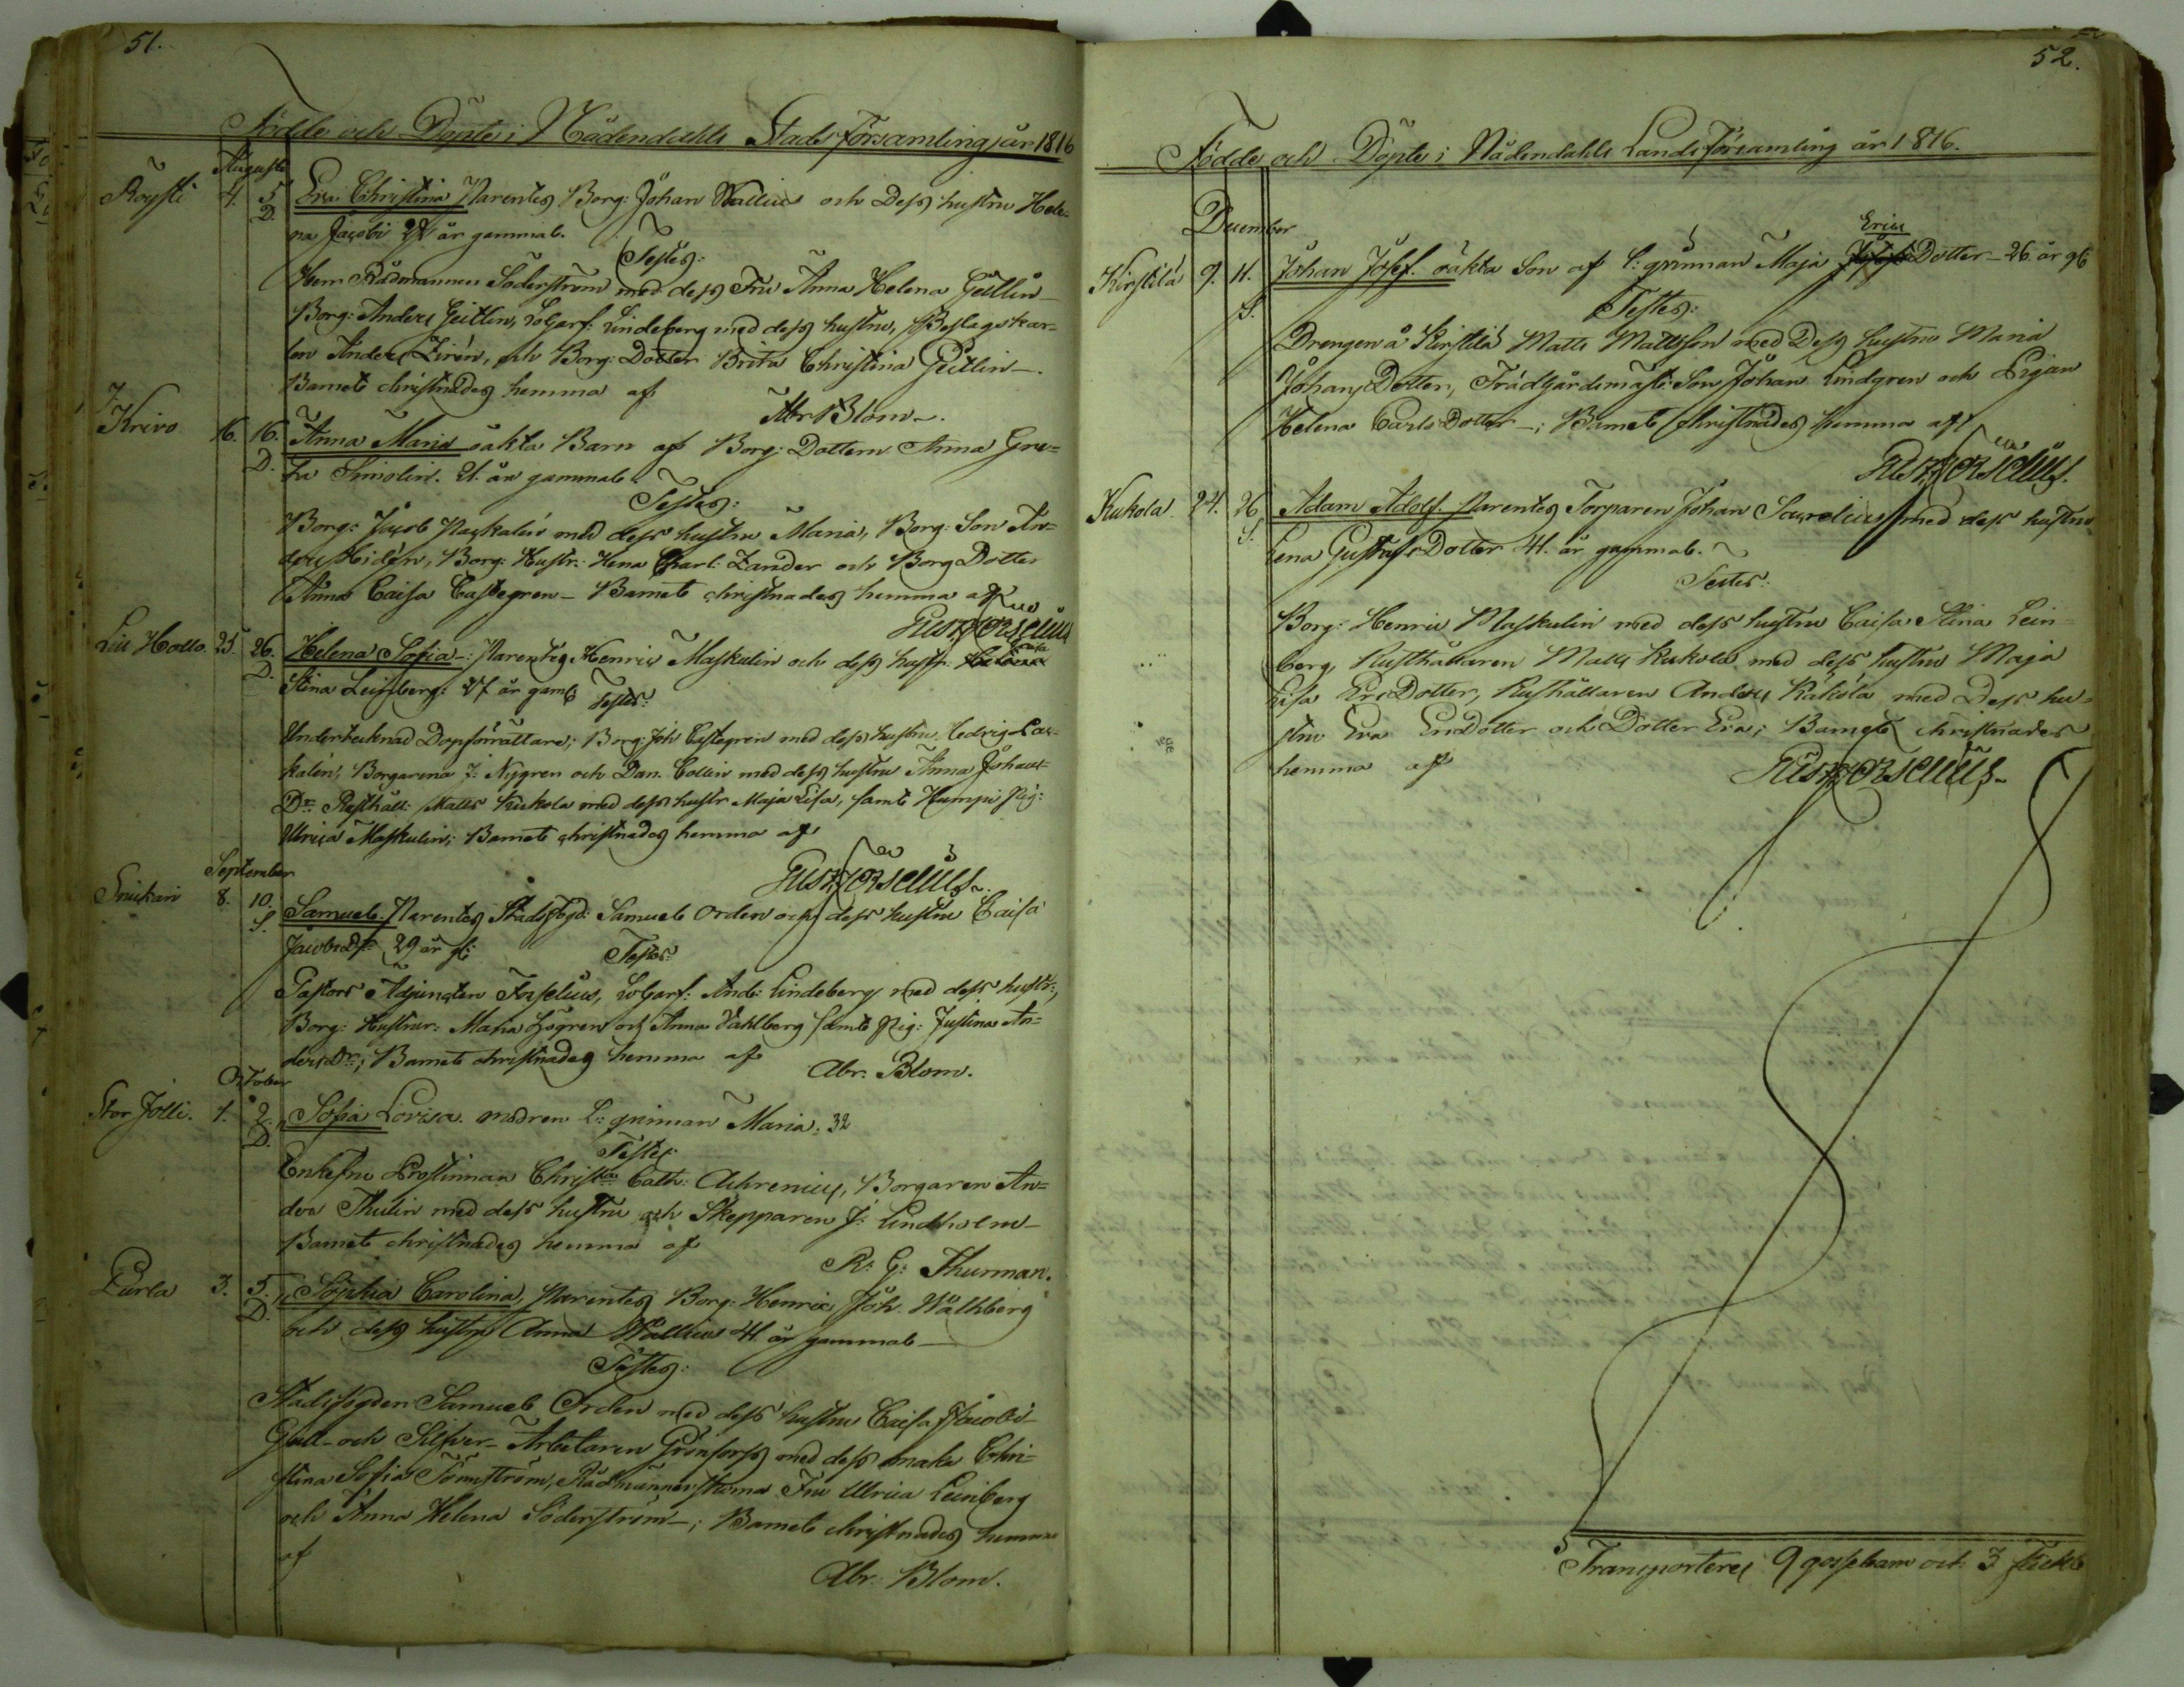 51.
Födde och Döpte i Nådendahls Stads församling år 1816
Augusti
Röysti 4. 5 D. Eva Christina Parentes Borg: Johan Wallius och Dess hustru Hele-
na Jacobi 27 år gammal.
Testes:
Herr Rådmannen Söderström med dess Fru Anna Helena Geitlin
Borg: Anders Geitlin, Lindeberg med dess hustru, Beslagskar-
len Anders Zirén, och Borg: Dotter Brita Christina Geitlin -.
Barnet christnades hemma af
Abr. Blom -.
Krivo 16. 16. D. Anna Maria oäkta Barn af Borg: Dottern Anna Gre-
ta Simolin. 21. år gammal
Testes:
Borg: Jacob Paskalin med dess hustru Maria, Borg: Son An-
ders Hidén, Borg: Hustr: Hena Charl: Zander och Borg Dotter
Anna Caisa Castegren - Barnet christnades hemma af
Gust. Forselius
Lill Hollo. 25. 26. D. Helena Sofia -: Parentes Henric Maskulin och dess hustr. Caisa
Stina Leinberg: 27 år gaml
Testes:
Undertecknad Dopförrättare; Borg: Joh Castegren med dess hustru Hedvig Pas-
kalin, Borgarena J: Nygren och Dan. Collin med dess hustru Anna Johans
Dr: Rusthåll: Matts Kukola med dess hustr Maja Lisa, samt Humpi Pig:
Ulrica Maskulin; Barnet christnades hemma af
Gust. Forselius.
September
Snickari 8. 10. S. Samuel. Parentes Stadsfogd: Samuel Orden och dess hustru Caisa
Jacobs Dr 29 år gl:
Testes:
Pastors Adjuncten Forselius, And: Lindeberg med dess hustr:,
Borg: Hustrur: Maria Högren och Anna Vahlberg samt Pig: Justina An-
ders Dr; Barnet christnades hemma af
Abr. Blom.
October
Stor Jolli. 1. 2. D. Sofia Lovisa. modren L: qvinnan Maria. 32
Testes:
Enkefru Prostinnan Christ Cath: Achrenius, Borgaren An-
ders Thulin med dess hustru och Skepparen J: Lindholm -
Barnet christnades hemma af
R: G: Thurman.
Purla 3. 5. D. Sophia Carolina, Parentes Borg: Henric Joh. Wåhlberg
och dess hustru Anna Wallius 41 år gammal -
Testes:
Stadsfogden Samuel Orden med dess hustru Caisa Jacobs
Gull- och Silfver-Arbetaren Grönfors med dess maka Chri-
stina Sofia Tömström, Rådmännerskorna Fru Ulrica Leinberg
och Anna Helena Söderström -; Barnet christnades hemma
af
Abr. Blom.
52.
Födde och Döpte i Nådendahls Landsförsamling år 1816.
December
Eric
Kirstilä 9. 11. S. Johan Josef. oäkta Son af L: qvinnan Maja Dotter - 26 år gl:
Testes:
Drengen å Kirstilä Matts Mattsson med Dess hustru Maria
Johans Dotter, Trädgårdsmäst: Son Johan Lindgren och Pigan
Helena Carls Dotter -; Barnet christnades hemma af
Gust. Forselius.
Kukola 24. 26 S. Adam Adolf. Parentes Torparen Johan Saxelius med dess hustru
Lena Gustafs Dotter 41. år gammal.
Testes:
Borg: Henric Maskulin med dess hustru Caisa Stina Lein-
berg, Rusthållaren Matts Kukola med dess hustru Maja
Lisa Ers Dotter, Rusthållaren Anders Käköla med Dess hu-
stru Eva Ers Dotter och Dotter Eva; Barnet christnades
hemma af
Gust. Forselius -
Transporteres 9 gossebarn och 3 flicke